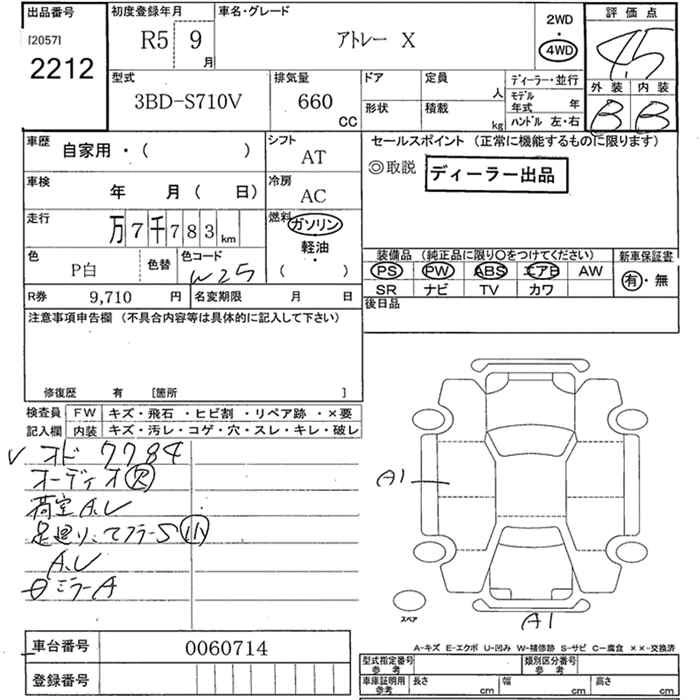 出品番号
[2057]
2212
初度登録年月
R5 9 月
車名・グレード
アトレー X
2WD
・
4WD
評価点
4.5
外装 内装
B B
型式
3BD-S710V
排気量
660 CC
ドア
形状
定員 人
積載 kg
ディーラー・並行
モデル年式 年
ハンドル 左・右
車歴 自家用・( )
シフト
AT
車検 年 月 ( 日)
冷房
AC
走行 万 7 千 7 8 3 km
燃料 ガソリン
・
軽油
・
( )
色
P白
色替
色コード
W25
R券 9,710 円 名変期限 月 日
セールスポイント (正常に機能するものに限ります)
◎取説 ディーラー出品
装備品 (純正品に限り○をつけてください)
新車保証書
PS PW ABS エアB AW
有・無
SR ナビ TV カワ
後日品
注意事項申告欄 (不具合内容等は具体的に記入して下さい)
修復歴 有 [箇所 ]
検査員 FW キズ・飛石・ヒビ割・リペア跡・×要
記入欄 内装 キズ・汚レ・コゲ・穴・スレ・キレ・破レ
オド 7784
オーディオ 欠
荷室 A,U
足廻り、マフラーS 小
A,U
ミラーA
A1
スペア
A1
A-キズ E-エクボ U-凹み W-補修跡 S-サビ C-腐食 ××-交換済
車台番号 0060714
登録番号
型式指定番号 参考
類別区分番号 参考
車庫証明用 参考 長さ cm 幅 cm 高さ cm